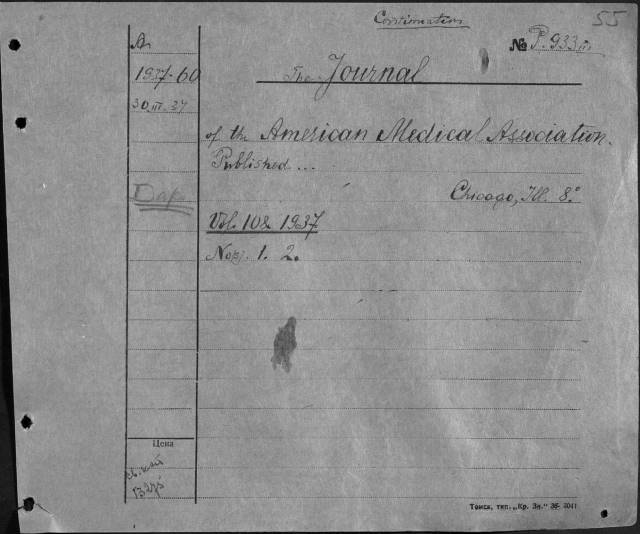 Continuation
55
A
№ P.933 III.
1937-60
The Journal
30.III.37
of the American Medical Association.
Published...
Дар
Chicago, Ill. 8°
Vol. 108 1937
Nos. 1. 2.
Цена
Томск, тип. „Кр. Зн." 36- 3041